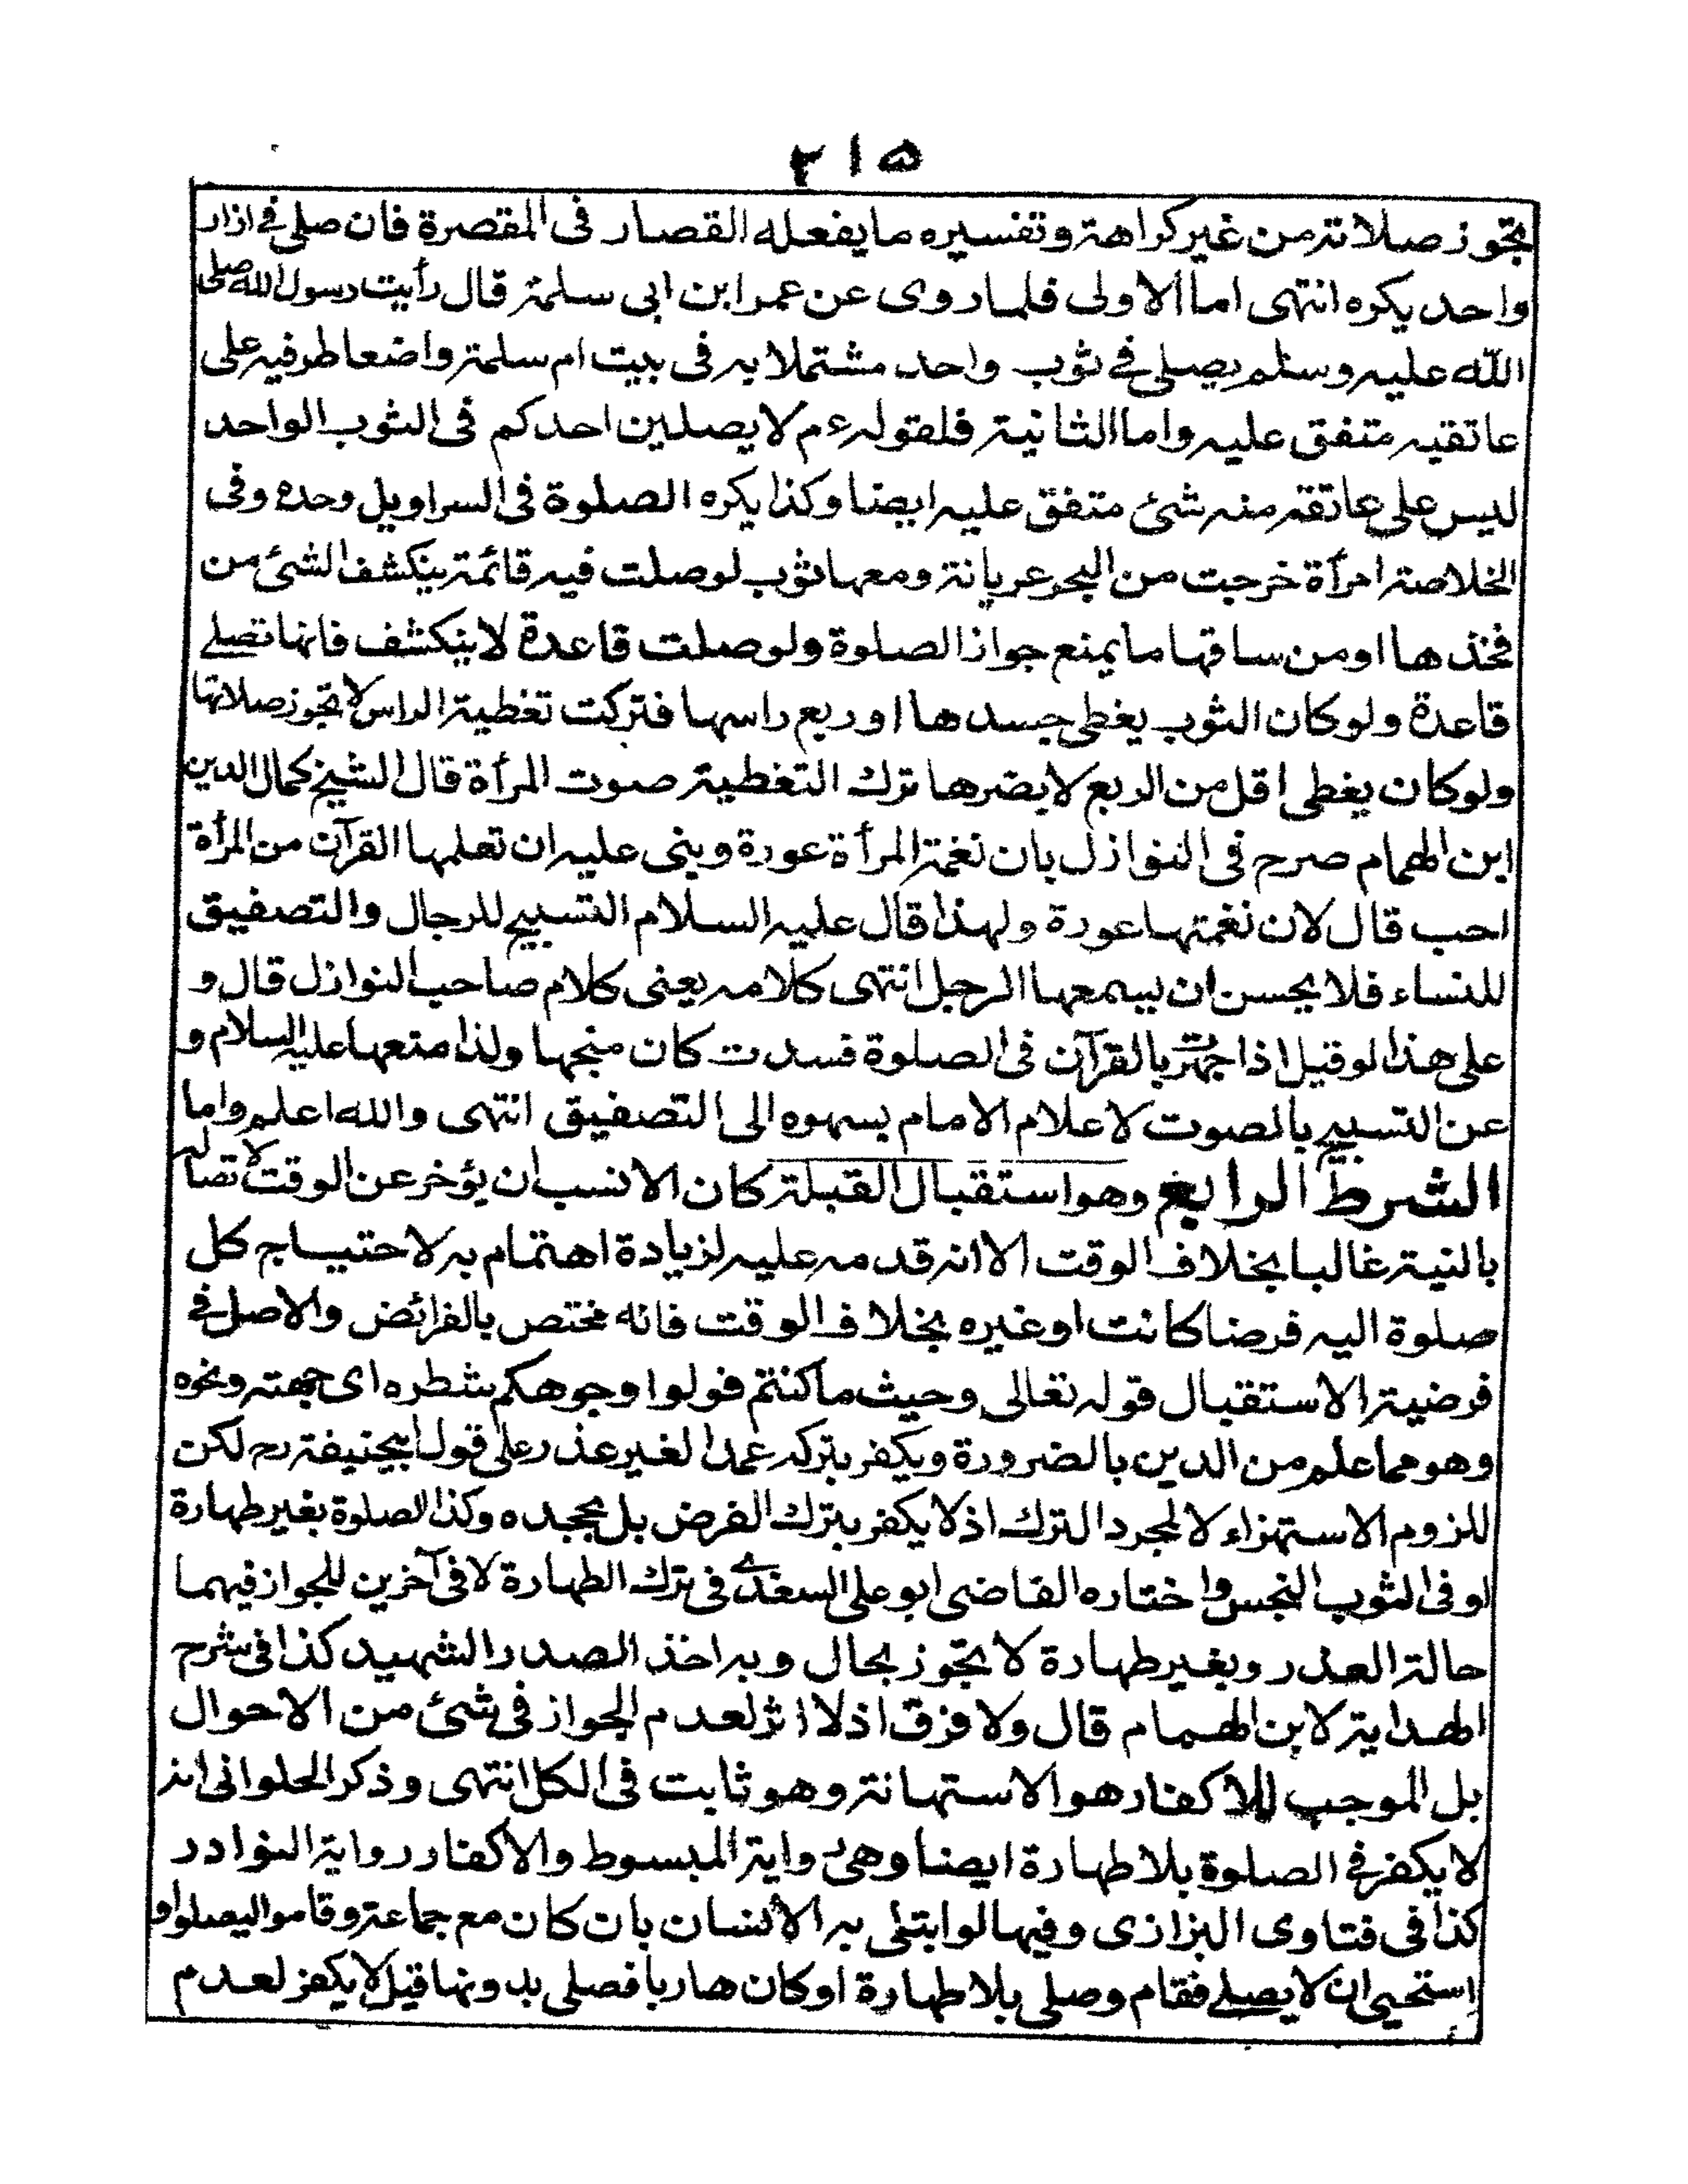 ٢١٥
تجوز صلاته من غير كراهة وتفسيره ما يفعله القصار فى المقصرة فان صلى فى ازار
واحد يكره انتهى اما الاولى فلما روى عن عمر ابن ابى سلمة قال رأيت رسول الله صلى
الله عليه وسلم يصلى فى ثوب واحد مشتملا به فى بيت ام سلمة واضعا طرفيه على
عاتقيه متفق عليه واما الثانية فلقوله ءم لا يصلين احدكم فى الثوب الواحد
ليس على عاتقه منه شئ متفق عليه ايضا وكذا يكره الصلوة فى السراويل وحده وفى
الخلاصة امرأة خرجت من البحر عريانة ومعها ثوب لو صلت فيه قائمة ينكشف الشئ من
فخذها او من ساقها ما يمنع جواز الصلوة ولو صلت قاعدة لا ينكشف فانها تصلى
قاعدة ولو كان الثوب يغطى جسدها او ربع راسها فتركت تغطية الراس لا تجوز صلاتها
ولو كان يغطى اقل من الربع لا يضرها ترك التغطية صوت المرأة قال الشيخ كمال الدين
ابن الهمام صرح فى النوازل بان نغمة المرأة عورة وبنى عليه ان تعلمها القرآن من المرأة
احب قال لان نغمتها عورة ولهذا قال عليه السلام التسبيح للرجال والتصفيق
للنساء فلا يحسن ان يسمعها الرجل انتهى كلامه يعنى كلام صاحب النوازل قال و
على هذا لو قيل اذا جهرت بالقرآن فى الصلوة فسدت كان متجها ولذا منعها عليه السلام و
عن التسبيح بالصوت لاعلام الامام بسهوه الى التصفيق انتهى والله اعلم واما
الشرط الرابع وهو استقبال القبلة كان الانسب ان يؤخر عن الوقت لاتصاله
بالنية غالبا بخلاف الوقت الا انه قدمه عليه لزيادة اهتمام به لاحتياج كل
صلوة اليه فرضا كانت او غيره بخلاف الوقت فانه مختص بالفرائض والاصل فى
فرضية الاستقبال قوله تعالى وحيث ما كنتم فولوا وجوهكم شطره اى جهته ونحوه
وهو مما علم من الدين بالضرورة ويكفر بتركه عمدا لغير عذر على قول ابيحنيفة رح لكن
للزوم الاستهزاء لا لمجرد الترك اذ لا يكفر بترك الفرض بل بجحده وكذا الصلوة بغير طهارة
او فى الثوب النجس واختاره القاضى ابو على السغدى فى ترك الطهارة لا فى آخرين للجواز فيهما
حالة العذر وبغير طهارة لا تجوز بحال وبه اخذ الصدر الشهيد كذا فى شرح
الهداية لابن الهمام قال ولا فرق اذ لا اثر لعدم الجواز فى شئ من الاحوال
بل الموجب للاكفار هو الاستهانة وهو ثابت فى الكل انتهى وذكر الحلوانى انه
لا يكفر فى الصلوة بلا طهارة ايضا وهى رواية المبسوط والاكفار رواية النوادر
كذا فى فتاوى البزازى وفيها لو ابتلى به الانسان بان كان مع جماعة وقاموا ليصلوا و
استحيى ان لا يصلى فقام وصلى بلا طهارة او كان هاربا فصلى بدونها قيل لا يكفر لعدم